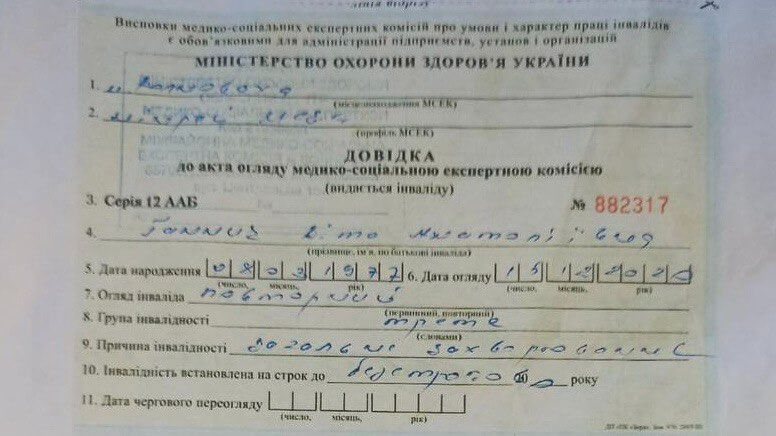 лінія відрізу
Висновки медико-соціальних експертних комісій про умови і характер праці інвалідів
є обов'язковими для адміністрації підприємств, установ і організацій
МІНІСТЕРСТВО ОХОРОНИ ЗДОРОВ'Я УКРАЇНИ
1. м.
(місцезнаходження МСЕК)
2.
(профіль МСЕК)
ДОВІДКА
до акта огляду медико-соціальною експертною комісією
(видається інваліду)
3. Серія 12 ААБ № 882317
4.
(прізвище, ім'я, по батькові інваліда)
5. Дата народження 08 03 1977 6. Дата огляду 15 12 2020
(число, місяць, рік) (число, місяць, рік)
7. Огляд інваліда повторний
(первинний, повторний)
8. Група інвалідності третя
(словами)
9. Причина інвалідності загальне захворювання
10. Інвалідність встановлена на строк до безстроково 20 року
11. Дата чергового переогляду
(число, місяць, рік)